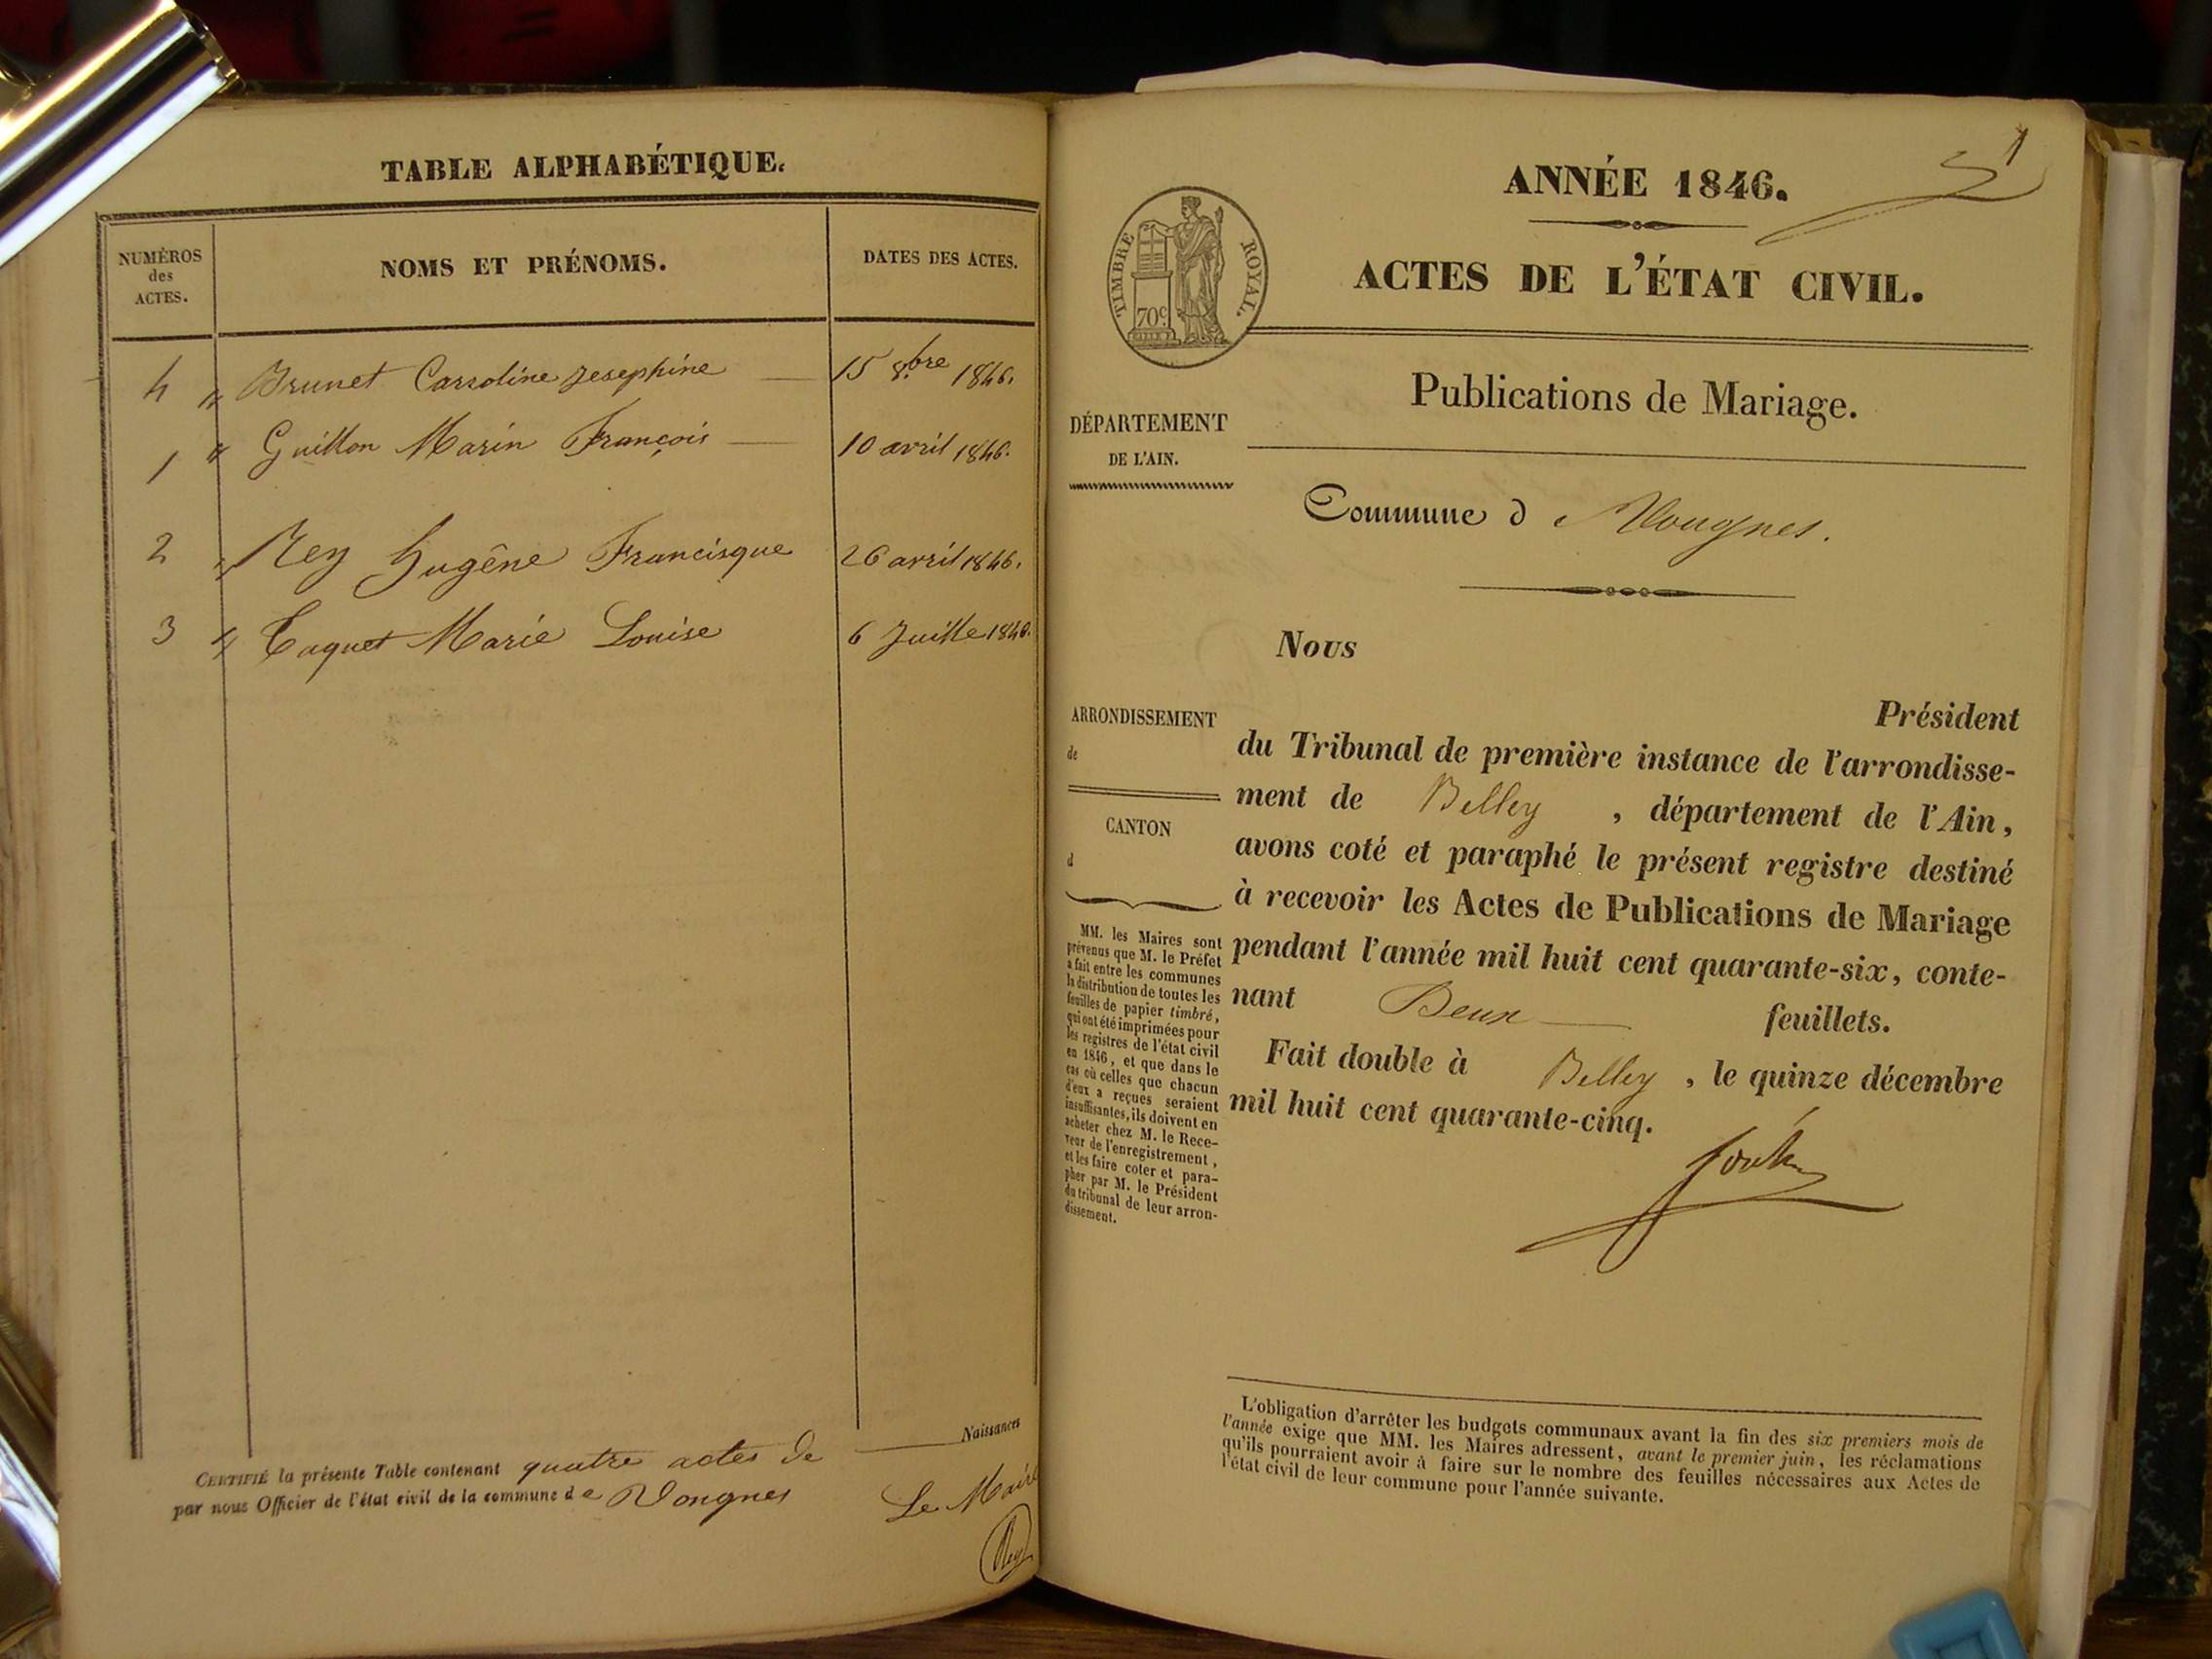 TABLE ALPHABÉTIQUE.
NUMÉROS des ACTES.
NOMS ET PRÉNOMS.
DATES DES ACTES.
4 " Brunet Carroline Josephine — 15 8.bre 1846.
1 " Guillon Marin François — 10 avril 1846.
2 " Rey Eugêne Francisque 26 avril 1846.
3 " Taquet Marie Louise 6 Juille 1846.
CERTIFIÉ la présente Table contenant quatre actes de Naissances
par nous Officier de l'état civil de la commune de Vongnes
Le Maire
Rey
1
ANNÉE 1846.
ACTES DE L'ÉTAT CIVIL.
TIMBRE ROYAL.
70c.
Publications de Mariage.
DÉPARTEMENT
DE L'AIN.
Commune de Vongnes.
Nous
Président
du Tribunal de première instance de l'arrondisse-
ment de Belley, département de l'Ain,
avons coté et paraphé le présent registre destiné
à recevoir les Actes de Publications de Mariage
pendant l'année mil huit cent quarante-six, conte-
nant Deux — feuillets.
Fait double à Belley, le quinze décembre
mil huit cent quarante-cinq.
ARRONDISSEMENT
de
CANTON
d
MM. les Maires sont
prévenus que M. le Préfet
a fait entre les communes
la distribution de toutes les
feuilles de papier timbré,
qui ont été imprimées pour
les registres de l'état civil
en 1846, et que dans le
cas où celles que chacun
d'eux a reçues seraient
insuffisantes, ils doivent en
acheter chez M. le Rece-
veur de l'enregistrement,
et les faire coter et para-
pher par M. le Président
du tribunal de leur arron-
dissement.
L'obligation d'arrêter les budgets communaux avant la fin des six premiers mois de
l'année exige que MM. les Maires adressent, avant le premier juin, les réclamations
qu'ils pourraient avoir à faire sur le nombre des feuilles nécessaires aux Actes de
l'état civil de leur commune pour l'année suivante.